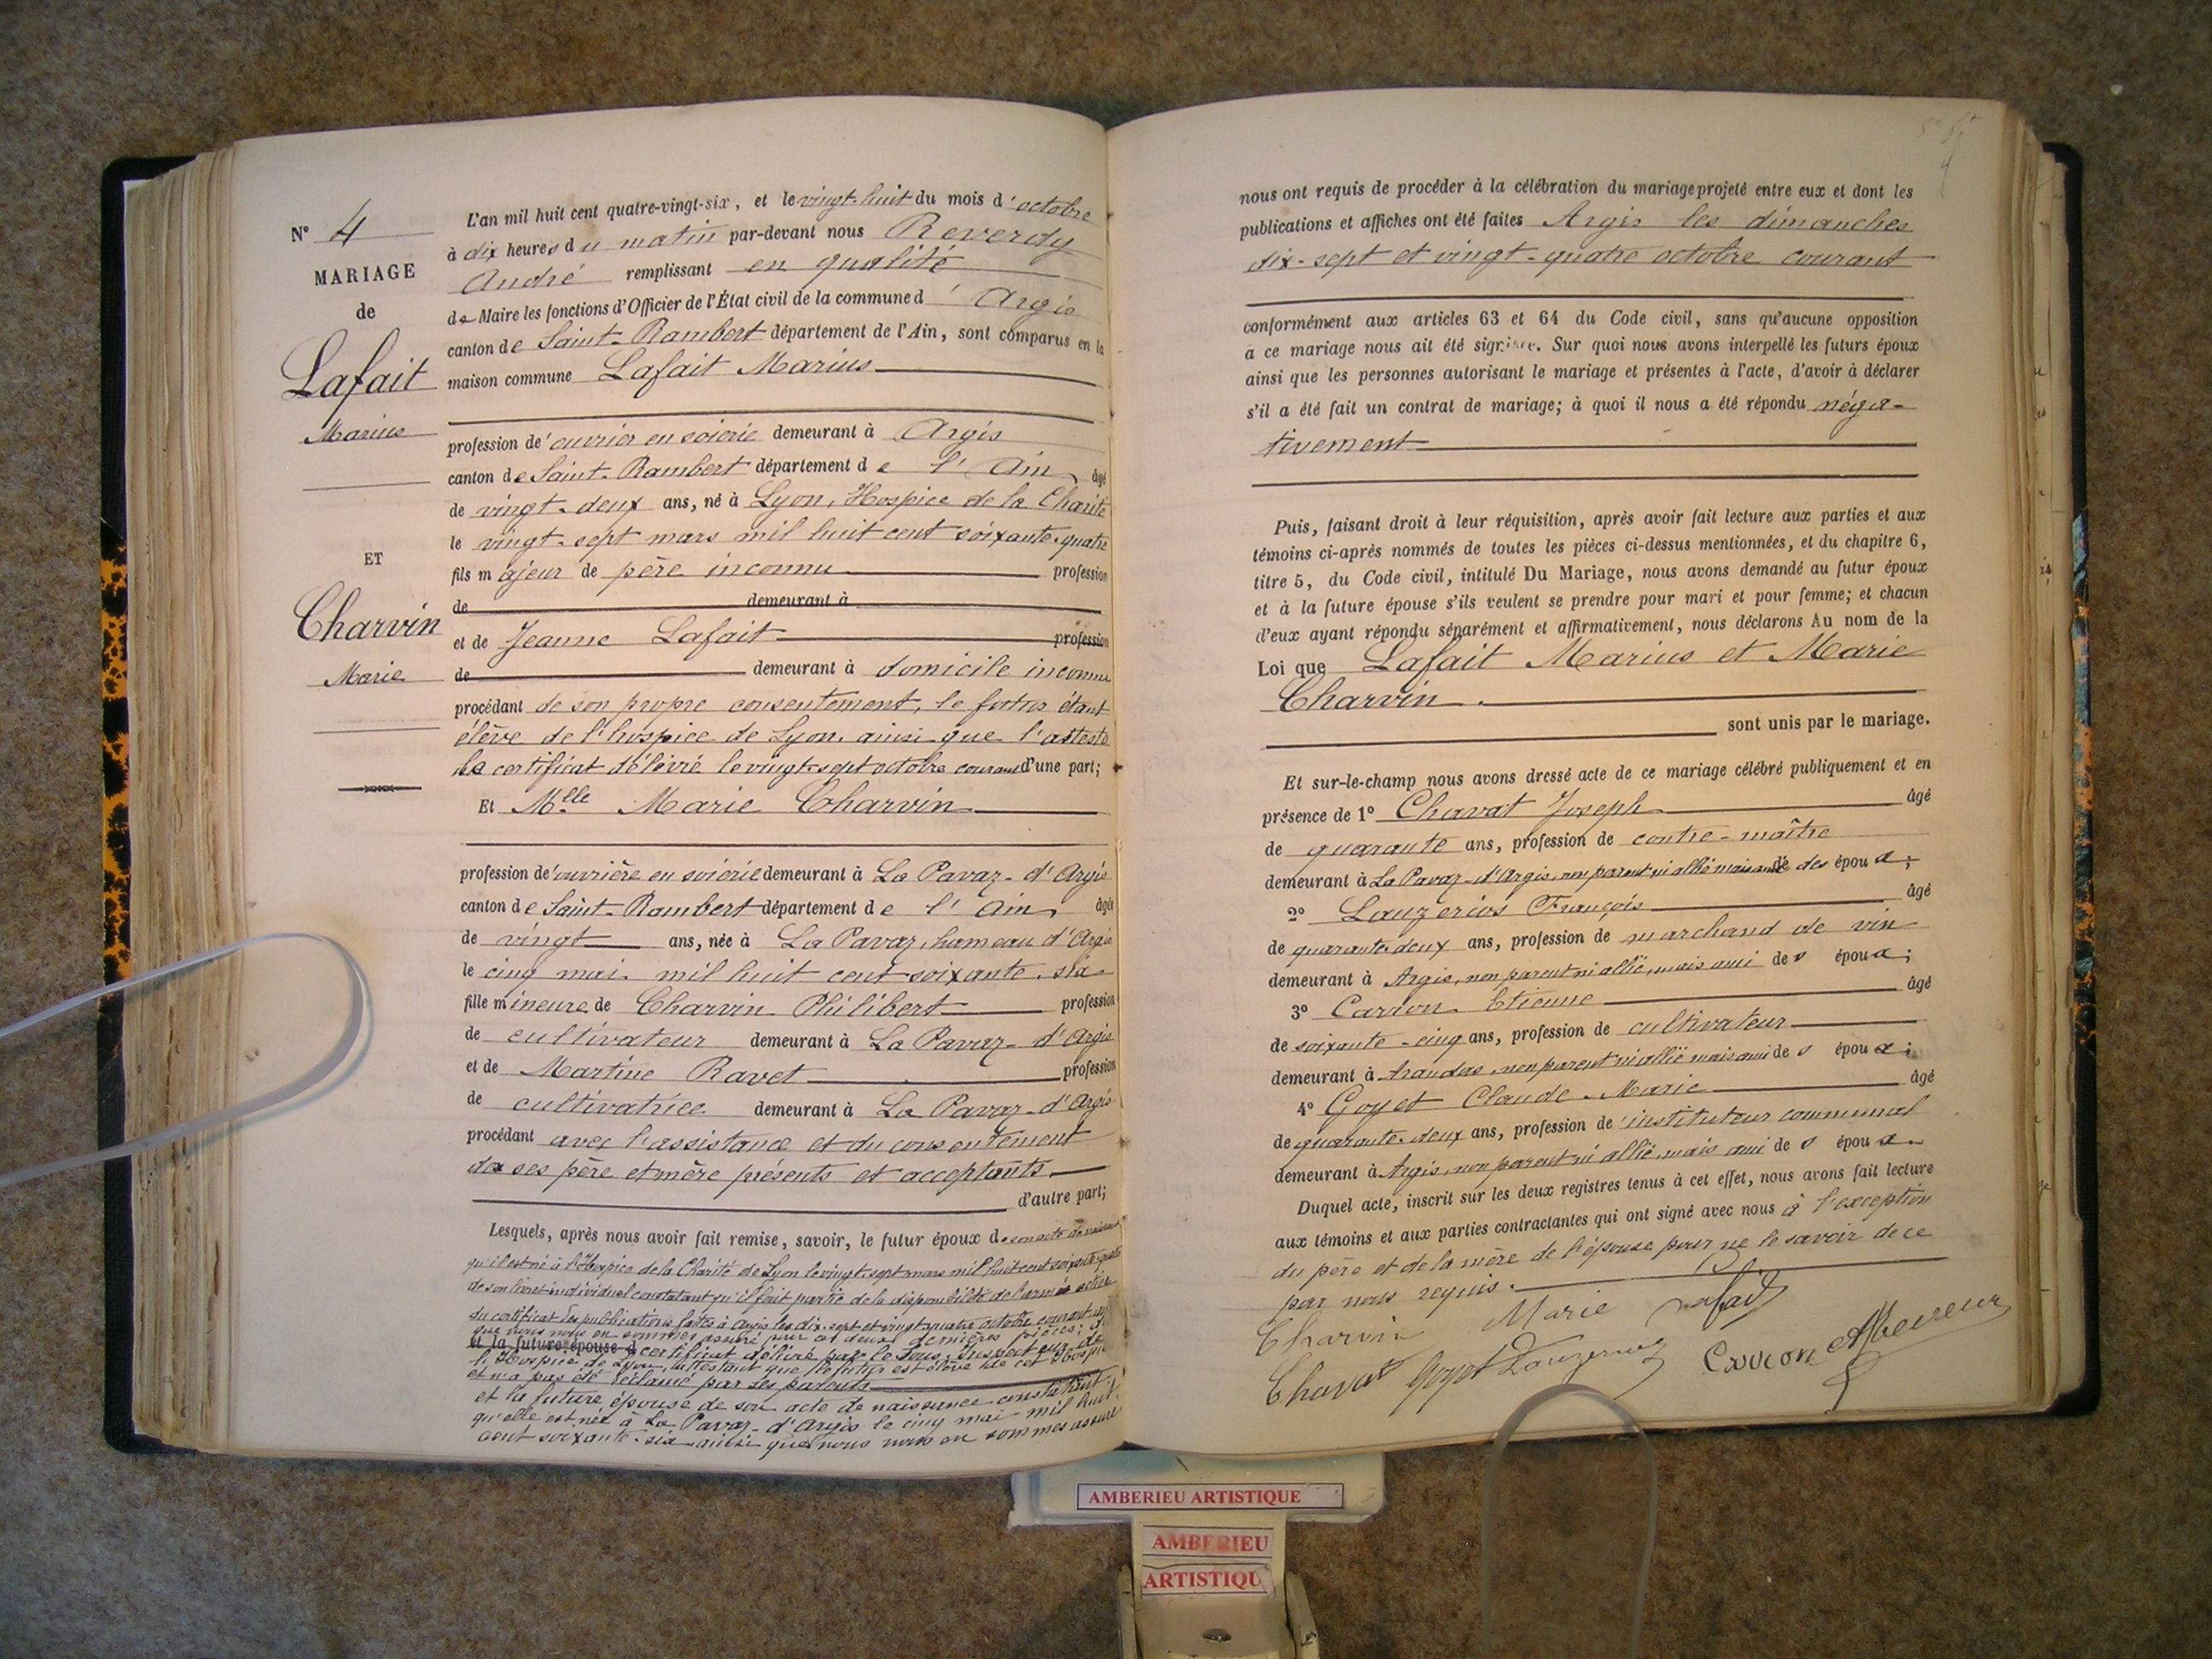 N° 4
MARIAGE
de
Lafait
Marius
ET
Charvin
Marie
L'an mil huit cent quatre-vingt-six, et le vingt-huit du mois d'octobre
à dix heures du matin par-devant nous Reverdy
André remplissant en qualité
de Maire les fonctions d'Officier de l'État civil de la commune d'Argis
canton de Saint-Rambert département de l'Ain, sont comparus en la
maison commune Lafait Marius
profession d'ouvrier en soierie demeurant à Argis
canton de Saint-Rambert département de l'Ain, âgé
de vingt-deux ans, né à Lyon, Hospice de la Charité
le vingt-sept mars mil huit cent soixante-quatre
fils majeur de père inconnu profession
de demeurant à
et de Jeanne Lafait profession
de demeurant à domicile inconnu
procédant de son propre consentement, le futur étant
élève de l'hospice de Lyon, ainsi que l'atteste
le certificat délivré le vingt-sept octobre courant d'une part;
Et Mlle Marie Charvin
profession d'ouvrière en soierie demeurant à La Pavaz-d'Argis
canton de Saint-Rambert département de l'Ain, âgée
de vingt ans, née à La Pavaz, hameau d'Argis
le cinq mai mil huit cent soixante-six
fille mineure de Charvin Philibert profession
de cultivateur demeurant à La Pavaz-d'Argis
et de Martine Ravet profession
de cultivatrice demeurant à La Pavaz-d'Argis
procédant avec l'assistance et du consentement
de ses père et mère présents et acceptants
d'autre part;
Lesquels, après nous avoir fait remise, savoir, le futur époux de son acte de naissance
qu'il est né à l'Hospice de la Charité de Lyon le vingt-sept mars mil huit cent soixante-quatre
de son livret individuel constatant qu'il fait partie de la disponibilité de l'armée active
du certificat des publications faites à Argis les dix-sept et vingt-quatre octobre courant
que nous nous en sommes assuré par ces deux dernières pièces;
et la future épouse d certificat délivré par le Sous-Inspecteur de
l'Hospice de Lyon, attestant que le futur est élève de cet Hospice
et n'a pas été réclamé par ses parents
et la future épouse de son acte de naissance constatant
qu'elle est née à La Pavaz-d'Argis le cinq mai mil huit
cent soixante-six ainsi que nous nous en sommes assuré
nous ont requis de procéder à la célébration du mariage projeté entre eux et dont les
publications et affiches ont été faites Argis les dimanches
dix-sept et vingt-quatre octobre courant
conformément aux articles 63 et 64 du Code civil, sans qu'aucune opposition
a ce mariage nous ait été signifiée. Sur quoi nous avons interpellé les futurs époux
ainsi que les personnes autorisant le mariage et présentes à l'acte, d'avoir à déclarer
s'il a été fait un contrat de mariage; à quoi il nous a été répondu néga-
tivement
Puis, faisant droit à leur réquisition, après avoir fait lecture aux parties et aux
témoins ci-après nommés de toutes les pièces ci-dessus mentionnées, et du chapitre 6,
titre 5, du Code civil, intitulé Du Mariage, nous avons demandé au futur époux
et à la future épouse s'ils veulent se prendre pour mari et pour femme; et chacun
d'eux ayant répondu séparément et affirmativement, nous déclarons Au nom de la
Loi que Lafait Marius et Marie
Charvin.
sont unis par le mariage.
Et sur-le-champ nous avons dressé acte de ce mariage célébré publiquement et en
présence de 1° Chavat Joseph âgé
de quarante ans, profession de contre-maître
demeurant à La Pavaz-d'Argis, non parent ni allié mais ami des époux;
2° François âgé
de quarante-deux ans, profession de marchand de vin
demeurant à Argis, non parent ni allié, mais ami des époux;
3° Carron Etienne âgé
de soixante-cinq ans, profession de cultivateur
demeurant à Arandas, non parent ni allié mais ami des époux;
4° Goyet Claude-Marie âgé
de quarante-deux ans, profession d'instituteur communal
demeurant à Argis, non parent ni allié, mais ami des époux.
Duquel acte, inscrit sur les deux registres tenus à cet effet, nous avons fait lecture
aux témoins et aux parties contractantes qui ont signé avec nous à l'exception
du père et de la mère de l'épouse pour ne le savoir de ce
par nous requis.
Charvin Marie Lafait
Chavat Goyet Carron
AMBERIEU ARTISTIQUE
AMBERIEU
ARTISTIQU